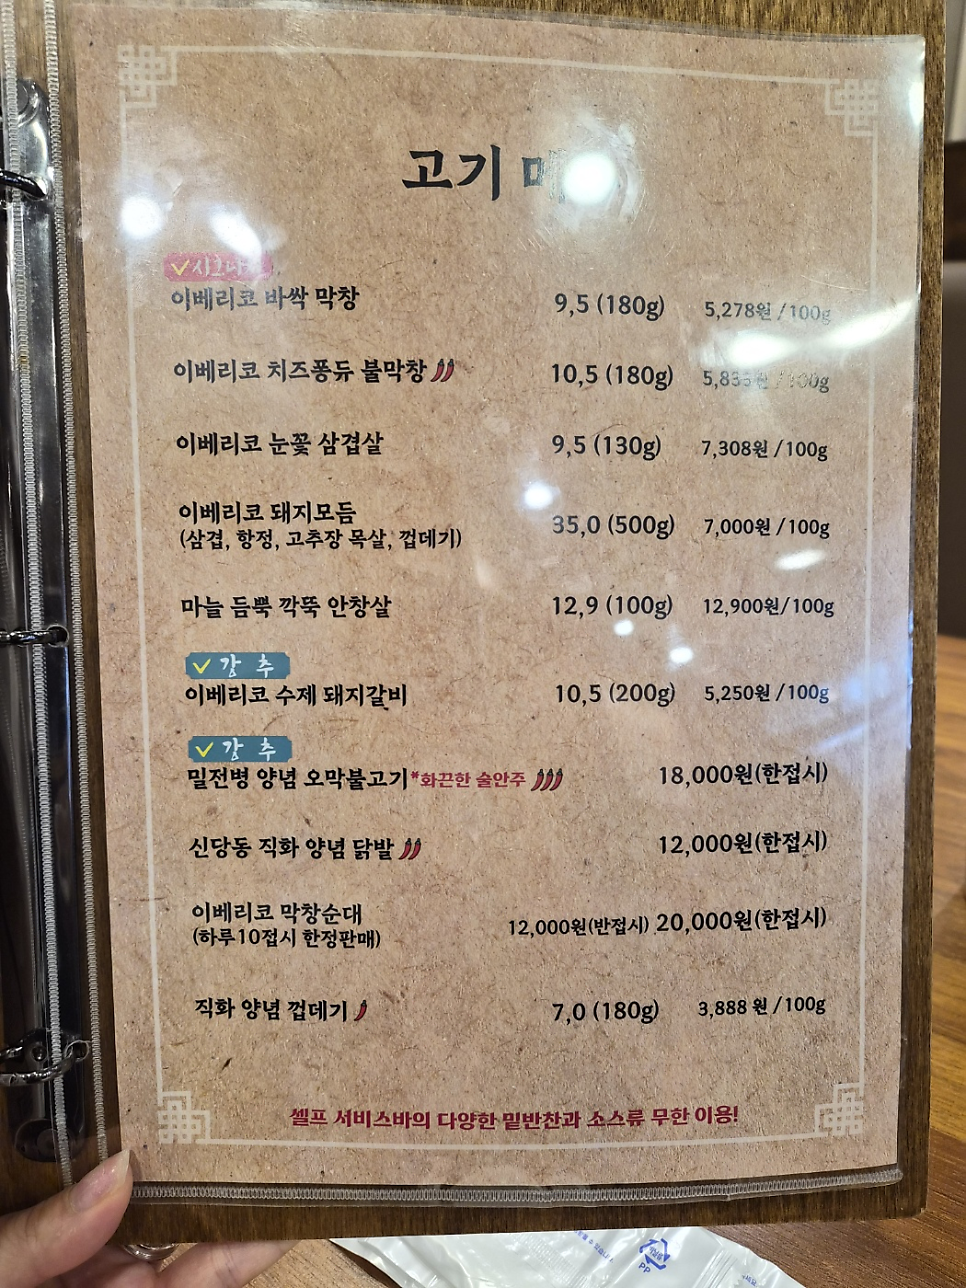 고기
이베리코 바싹 막창 9,5 (180g) 5,278원 / 100g
이베리코 치즈퐁듀 불막창 10,5 (180g) / 100g
이베리코 눈꽃 삼겹살 9,5 (130g) 7,308원 / 100g
이베리코 돼지모듬 35,0 (500g) 7,000원 / 100g
(삼겹, 항정, 고추장 목살, 껍데기)
마늘 듬뿍 깍뚝 안창살 12,9 (100g) 12,900원/ 100g
강 추
이베리코 수제 돼지갈비 10,5 (200g) 5,250원 / 100g
강 추
밀전병 양념 오막불고기 *화끈한 술안주 18,000원(한접시)
신당동 직화 양념 닭발 12,000원(한접시)
이베리코 막창순대 12,000원(반접시) 20,000원(한접시)
(하루10접시 한정판매)
직화 양념 껍데기 7,0 (180g) 3,888 원 / 100g
셀프 서비스바의 다양한 밑반찬과 소스류 무한 이용!
PP